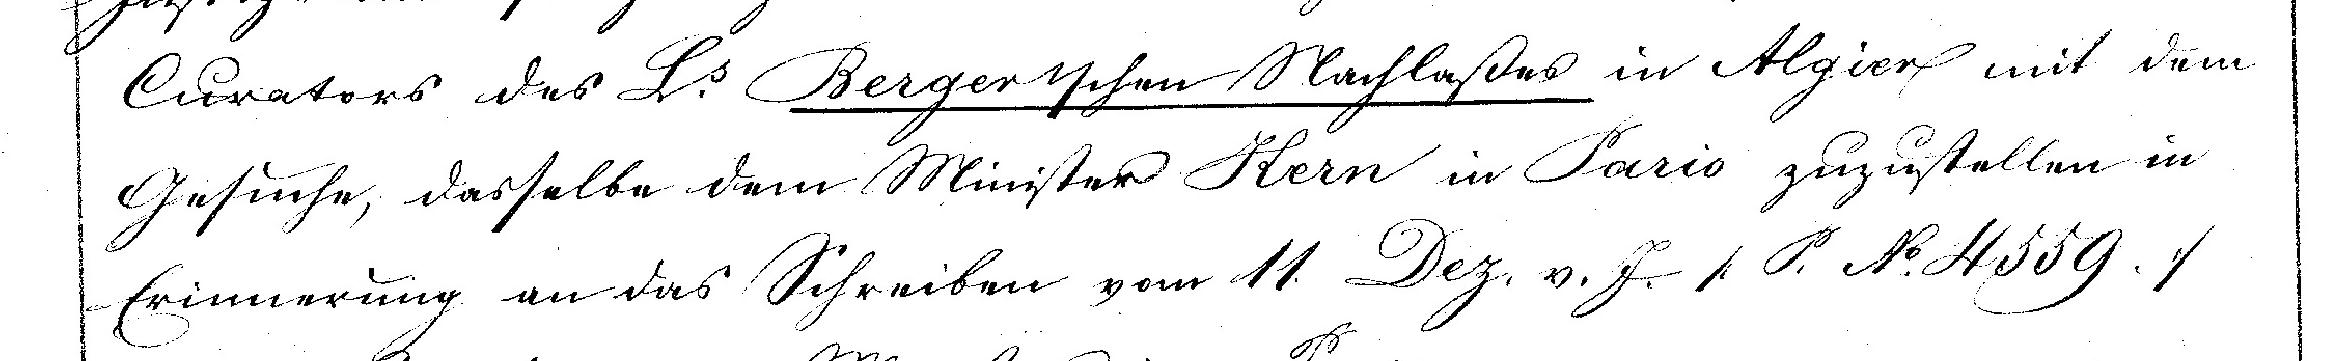 Curators des Ls. Berger'schen Nachlaßes in Algier mit dem
Gesuche, dasselbe dem Minister Kern in Paris zuzustellen in
Erinnerung an das Schreiben vom 11. Dez. v. J. /. P. No. 4559. ./